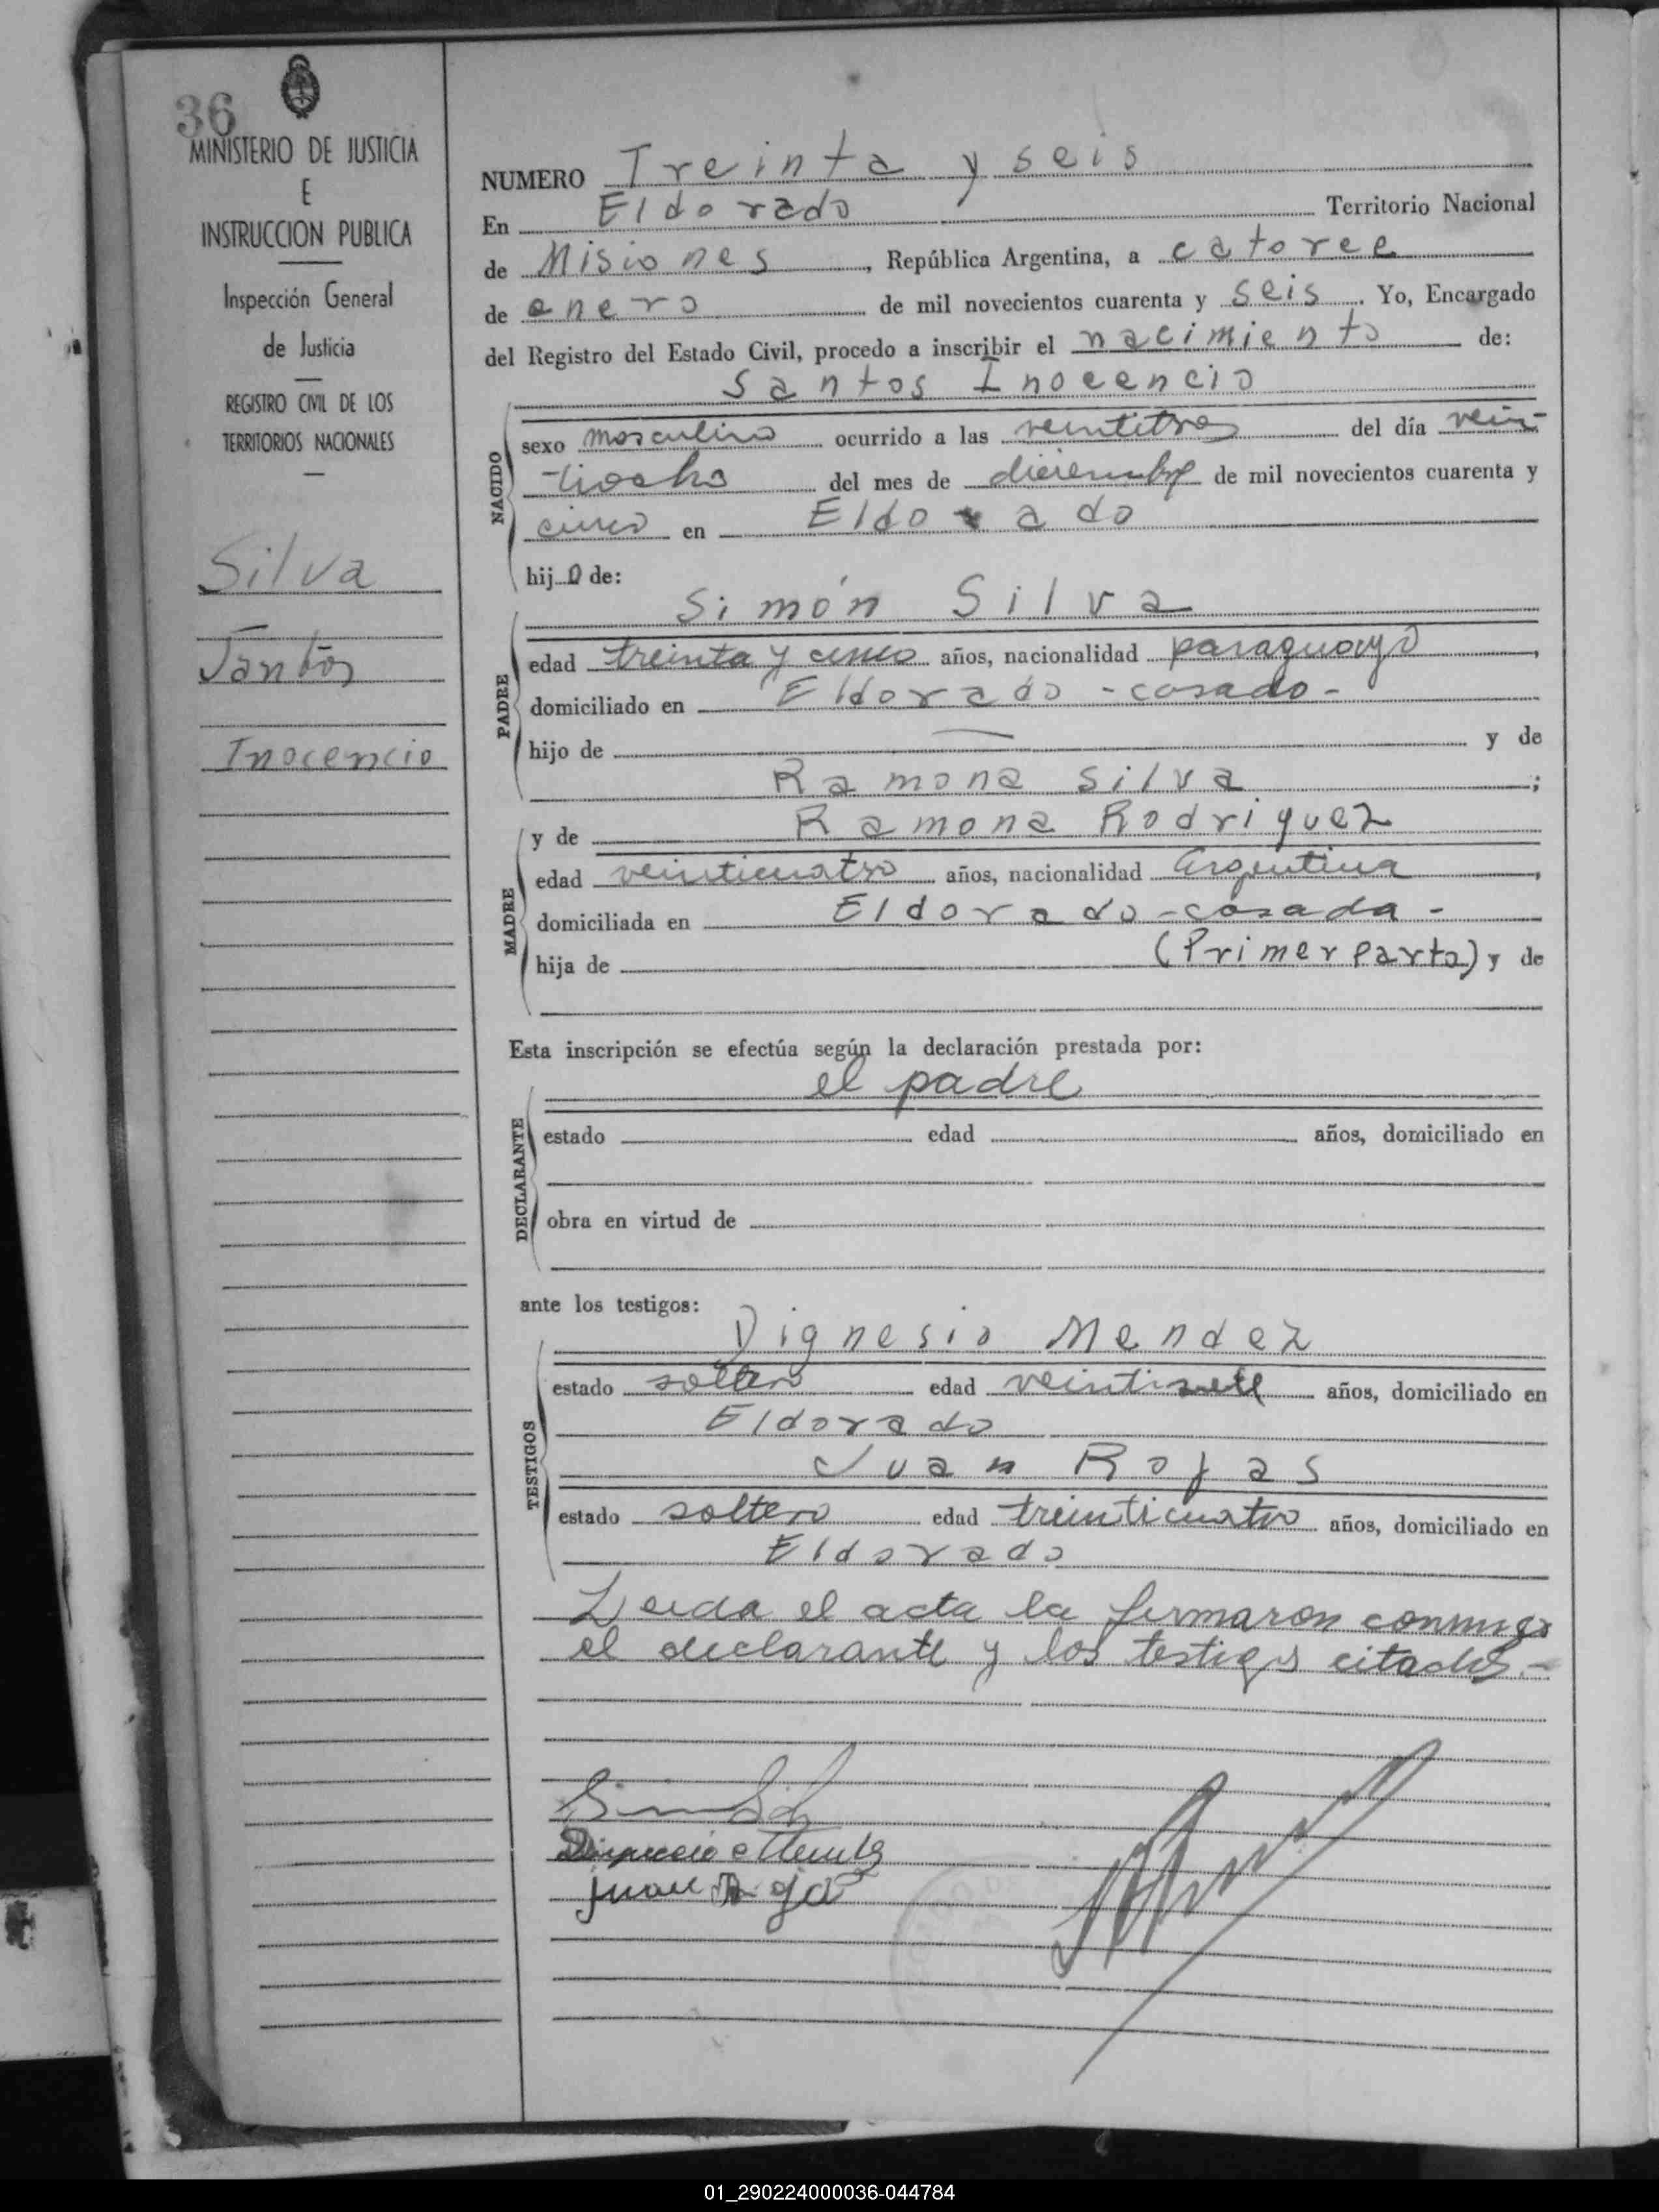 36
MINISTERIO DE JUSTICIA
E
INSTRUCCION PUBLICA
Inspección General
de Justicia
REGISTRO CIVIL DE LOS
TERRITORIOS NACIONALES
Silva
Santos
Inocencio
NUMERO Treinta y seis
En Eldorado Territorio Nacional
de Misiones, República Argentina, a catorce
de enero de mil novecientos cuarenta y seis. Yo, Encargado
del Registro del Estado Civil, procedo a inscribir el nacimiento de:
Santos Inocencio
NACIDO
sexo masculino ocurrido a las veintitres del día vein-
tiocho del mes de diciembre de mil novecientos cuarenta y
cinco en Eldorado
hijo de:
Simón Silva
PADRE
edad treinta y cinco años, nacionalidad paraguayo,
domiciliado en Eldorado - casado -
hijo de — y de
Ramona Silva;
y de Ramona Rodriguez
MADRE
edad veinticuatro años, nacionalidad argentina,
domiciliada en Eldorado - casada -
hija de (Primer parto) y de
Esta inscripción se efectúa según la declaración prestada por:
el padre
DECLARANTE
estado edad años, domiciliado en
obra en virtud de
ante los testigos:
Dignesio Mendez
TESTIGOS
estado soltero edad veintisiete años, domiciliado en
Eldorado
Juan Rojas
estado soltero edad treinticuatro años, domiciliado en
Eldorado
Leida el acta la firmaron conmigo
el declarante y los testigos citados.-
juan Roja
01_290224000036-044784